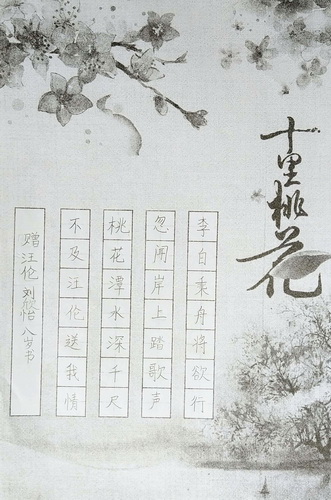 十里桃花
李白乘舟将欲行
忽闻岸上踏歌声
桃花潭水深千尺
不及汪伦送我情
赠汪伦 刘欣怡 八岁书